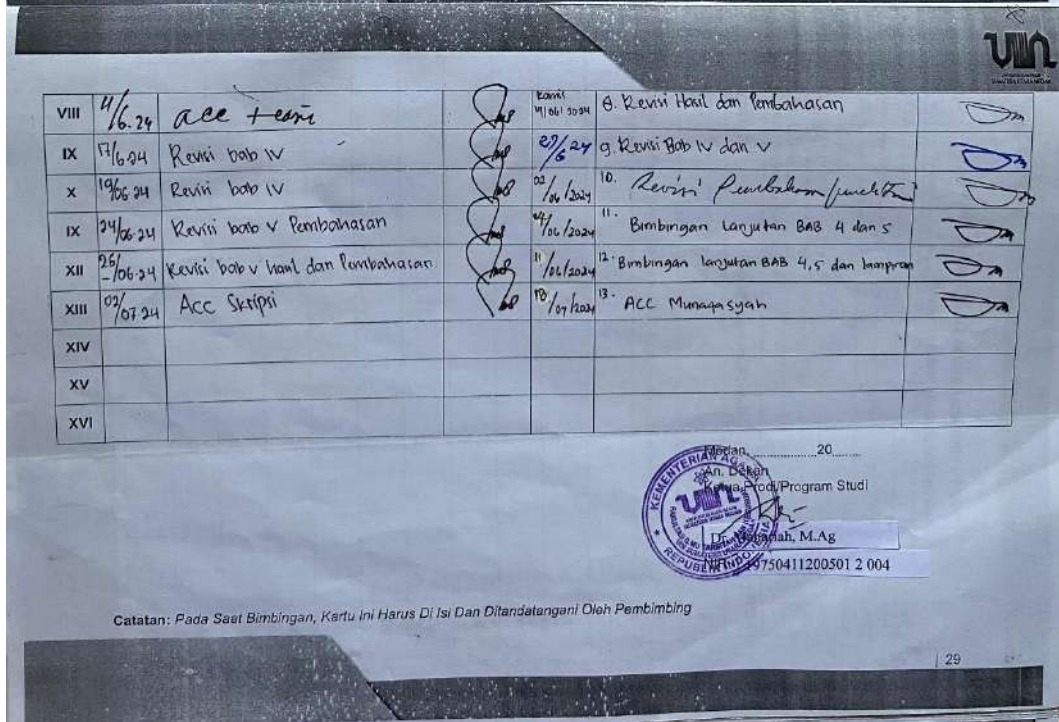 UIN
VIII 4/6.24 acc Kamis 4/06/2024 8. Revisi Hasil dan Pembahasan
IX 17/6.24 Revisi bab IV 27/6 24 9. Revisi Bab IV dan V
X 19/06.24 Revisi bab IV 02/06/2024 10. Revisi
IX 24/06.24 Revisi bab V Pembahasan 04/06/2024 11. Bimbingan Lanjutan BAB 4 dan 5
XII 26/06.24 Revisi bab V hasil dan Pembahasan 11/06/2024 12. Bimbingan lanjutan BAB 4,5 dan lampiran
XIII 02/07.24 Acc Skripsi 18/07/2024 13. ACC Munaqasyah
XIV
XV
XVI
Medan, ............20.......
An. Dekan
Ketua Prodi/Program Studi
KEMENTERIAN AGAMA
UIN
REPUBLIK INDONESIA
M.Ag
19750411200501 2 004
Catatan: Pada Saat Bimbingan, Kartu Ini Harus Di Isi Dan Ditandatangani Oleh Pembimbing
| 29